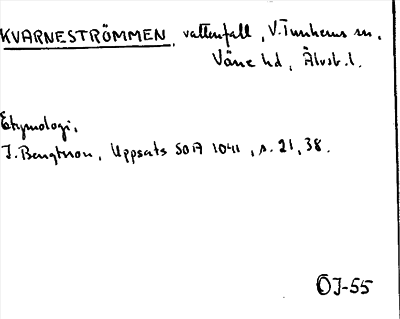 KVARNESTRÖMMEN, vattenfall, V. Tunhems sn,
Väne hd, Älvsb. l.
Etymologi,
J. Bengtsson, Uppsats SOA 1041, s. 21, 38.
ÖJ-55